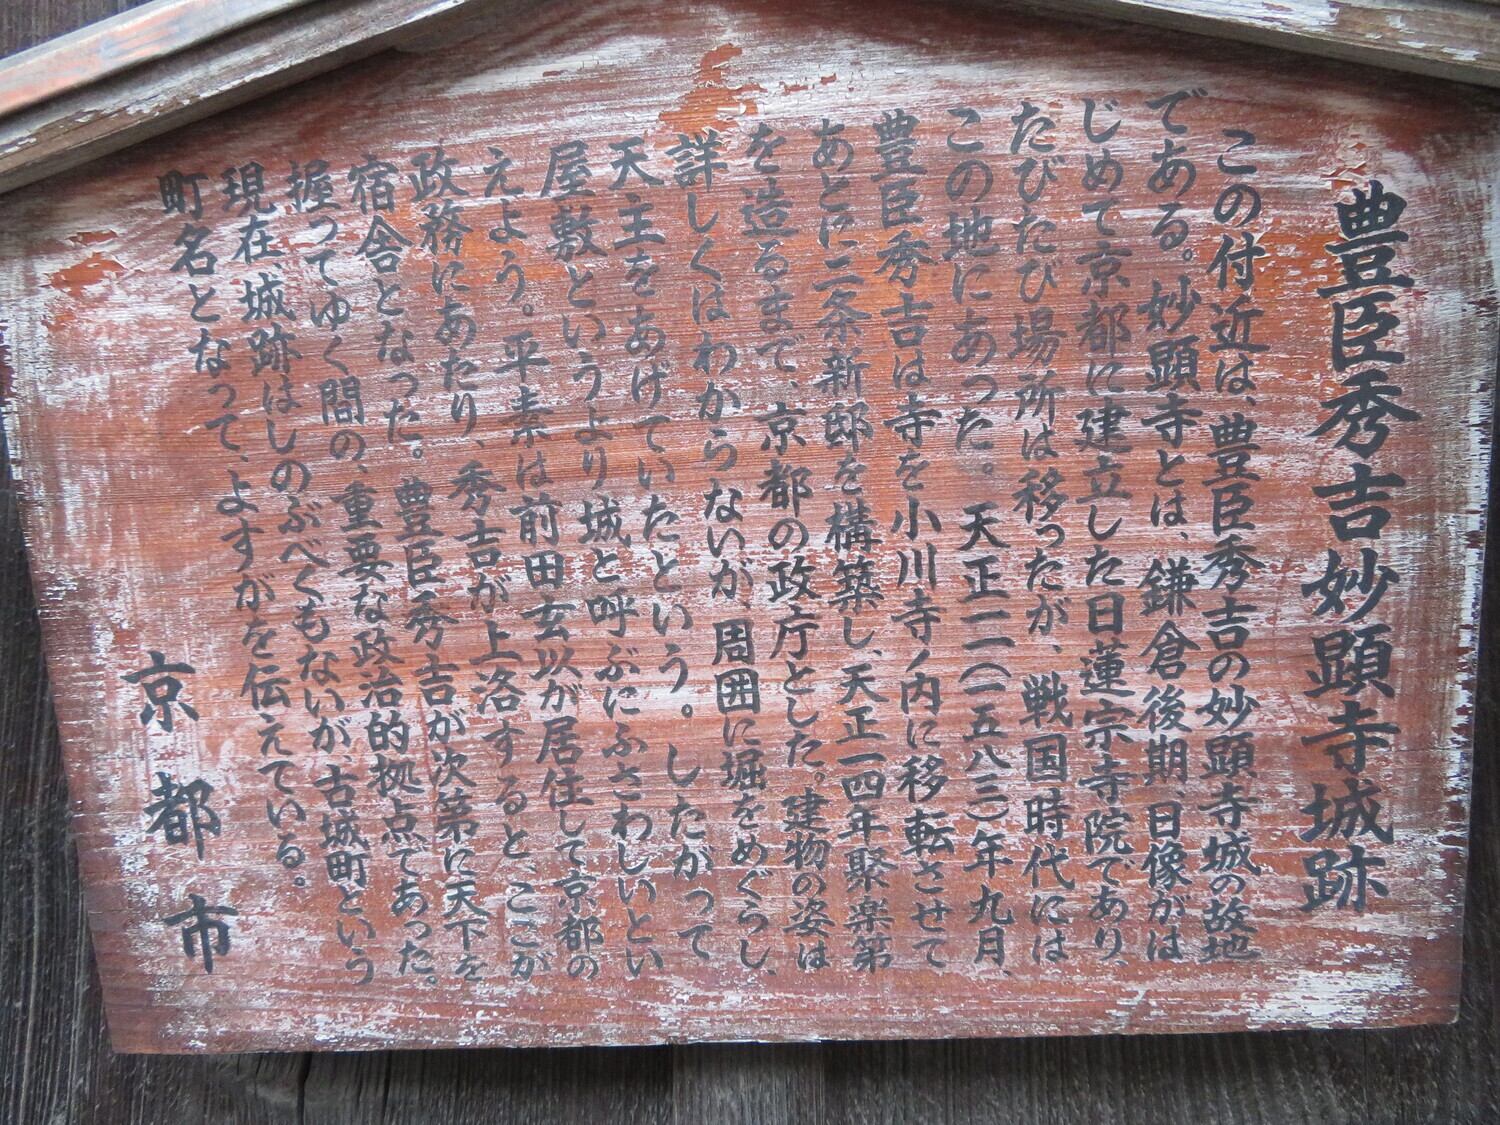 豊臣秀吉妙顕寺城跡
この付近は、豊臣秀吉の妙顕寺城の故地
である。妙顕寺とは、鎌倉後期、日像がは
じめて京都に建立した日蓮宗寺院であり、
たびたび場所は移ったが、戦国時代には
この地にあった。天正一一(一五八三)年九月、
豊臣秀吉は寺を小川寺ノ内に移転させて
あとに二条新邸を構築し、天正一四年聚楽第
を造るまで、京都の政庁とした。建物の姿は
詳しくはわからないが、周囲に堀をめぐらし、
天主をあげていたという。したがって
屋敷というより城と呼ぶにふさわしいとい
えよう。平素は前田玄以が居住して京都の
政務にあたり、秀吉が上洛すると、ここが
宿舎となった。豊臣秀吉が次第に天下を
握ってゆく間の、重要な政治的拠点であった。
現在城跡はしのぶべくもないが、古城町という
町名となって、よすがを伝えている。
京都市